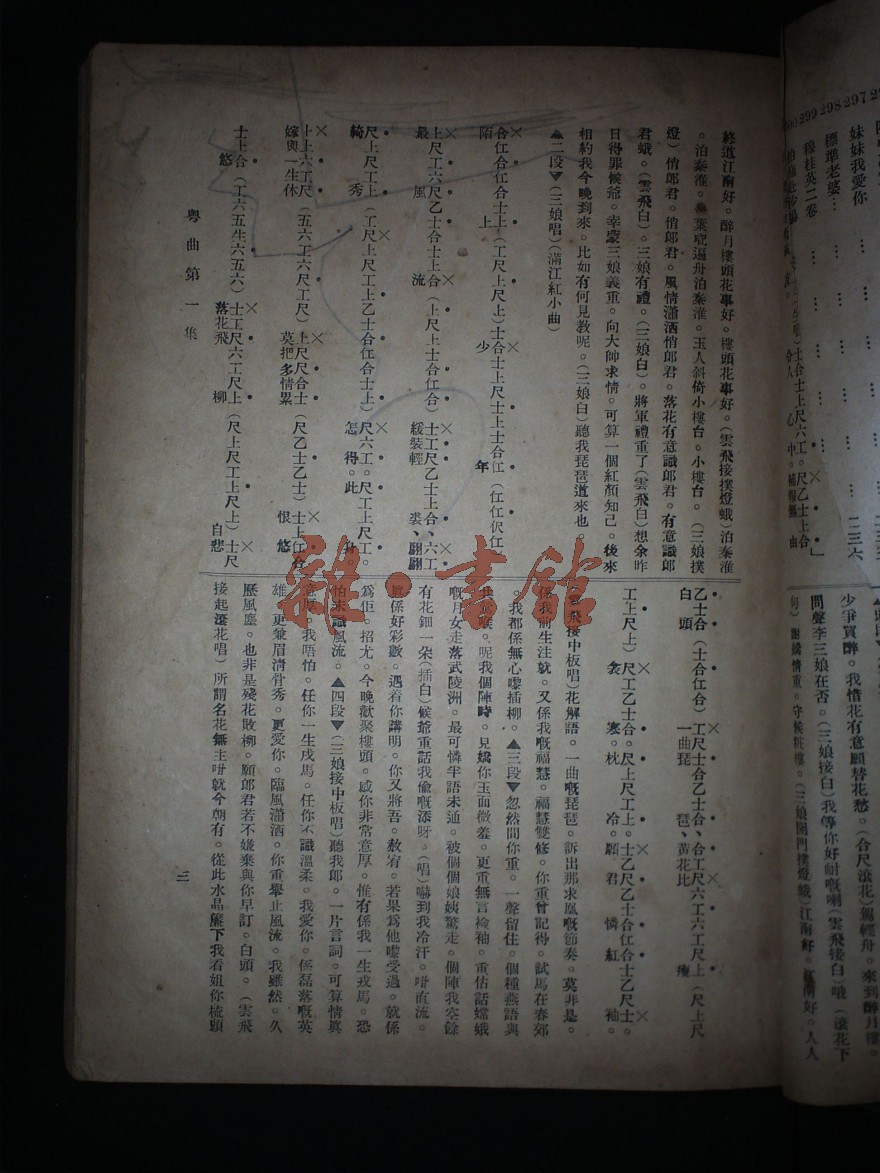 終道江南好。醉月樓頭花事好。樓頭花事好。(雲飛接撲燈蛾)泊秦淮
。泊秦淮。 舟泊秦淮。玉人斜倚小樓台。小樓台。(三娘撲
燈)俏郎君。俏郎君。風情瀟洒俏郎君。落花有意識郎君。有意識郎
君蛾。(雲飛白)。三娘有禮。(三娘白)。將軍禮重了(雲飛白)想余昨
日得罪候爺。幸蒙三娘義重。向大帥求情。可算一個紅顏知己。後來
相約我今晚到來。比如有何見教呢。(三娘白)聽我琵琶道來也。
▲二段▼(三娘唱)(滿江紅小曲)
合仜合仜合士上(工尺上尺上)士合士上尺士上士合仜(仜仜伬仜
陌 上 少 年
上尺工六尺乙士合士上合(上尺上士合仜合)士工尺乙士上合、六工
最 風 流 緩裝輕 裘、翩翩
尺上尺工上(工尺上尺工上乙士合仜合士上)尺六工。尺工上尺工。
綺 秀 怎 得。此 身
上上六工尺(五六工六尺工尺)上尺尺合士(尺乙士乙士)士上仜合
嫁與一生休 莫把多情累 恨 悠
士上合(工六五生六五六)士工尺六工尺上(尺上尺工上尺上)士尺
悠 落花飛 柳 自悲
粵曲第一集
乙士合(士合仜合)工尺士合乙士合、合工尺六工六工尺上(尺上尺
白頭 一曲琵 琶、黃花比 瘦
工上尺上)尺工乙士合。尺上尺工上。士乙尺乙士合仜合士乙尺士。
衾 寒。枕 冷。願 君 憐 紅 袖。
飛接中板唱)花解語。一曲嘅琵琶。訴出那求凰嘅節奏。莫非是。
係我前生注就。又係我嘅福慧。福慧雙修。你重曾記得。試馬在春郊
。我都係無心嚟插柳。▲三段▼忽然間你重。一聲留住。個種燕語與
喉。呢我個陣時。見嬌你玉面微羞。更重無言 袖。重估話嫦娥
嘅月女走落武陵洲。最可憐半語未通。被個個娘姨驚走。個陣我空餘
有花鈿一朵(插白)候爺重話我偷嘅添呀。(唱)嚇到我冷汗。咁直流。
眞係好彩數。遇着你講明。你又將吾。赦宥。若果爲他嚟受過。就係
爲佢。招尤。今晚歡聚樓頭。感你非常意厚。惟有係我一生戎馬。恐
怕未識風流。▲四段▼(三娘接中板唱)聽我郎。一片言詞。可算情眞
意厚。我唔怕。任你一生戌馬。任你不識溫柔。我愛你。係磊落嘅英
雄。更兼眉清骨秀。更愛你。臨風瀟洒。你重舉止風流。我雖然。久
歷風塵。也非是殘花敗柳。願郎君若不嫌棄與你早訂。白頭。(雲飛
接起滾花唱)所謂名花無主咁就今朝有。從此水晶簾下我看姐你梳頭
三
299 298 297
妹妹我愛你
標準老婆…
穆桂英二卷
二三六
少爭買醉。我惜花有意願替花愁。(合尺滾花)駕輕舟。來到醉月樓。
問聲李三娘在否。(三娘接白)我等你好耐嘅喇(雲飛接白)哦(滾花下
句)謝嬌情重。守候粧樓。(三娘開門撲燈蛾)江南好。江南好。人人